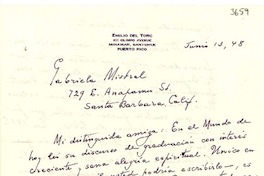 3659
EMILIO DEL TORO
MIRAMAR, SANTURCE
PUERTO RICO
Junio 13, 48
Gabriela Mistral
729 E. Anapamu St.
Santa Barbara, Calif.
Mi distinguida amiga: En el Mundo de
hoy leí su discurso de graduación con interés
creciente y sana alegría espiritual. Unico en
podría escribirlo